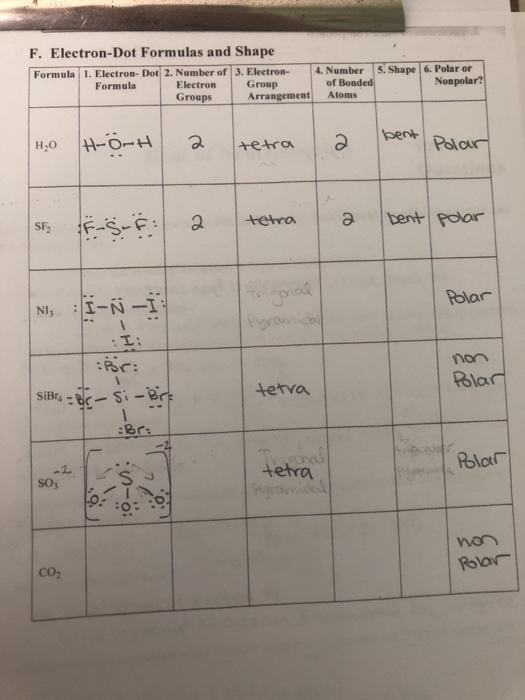 F. Electron-Dot Formulas and Shape
Formula 1. Electron- Dot Formula 2. Number of Electron Groups 3. Electron-Group Arrangement 4. Number of Bonded Atoms 5. Shape 6. Polar or Nonpolar?
H₂O H-Ö-H 2 tetra 2 bent Polar
SF₂ :F-S-F: 2 tetra 2 bent polar
NI₃ :I-N-I: Trigonal Pyramidal Polar
:I:
:Br:
SiBr₄ :Br-Si-Br: tetra non Polar
:Br:
-2
SO₃ -2 S tetra Polar
:O: :O: :O:
CO₂ non Polar